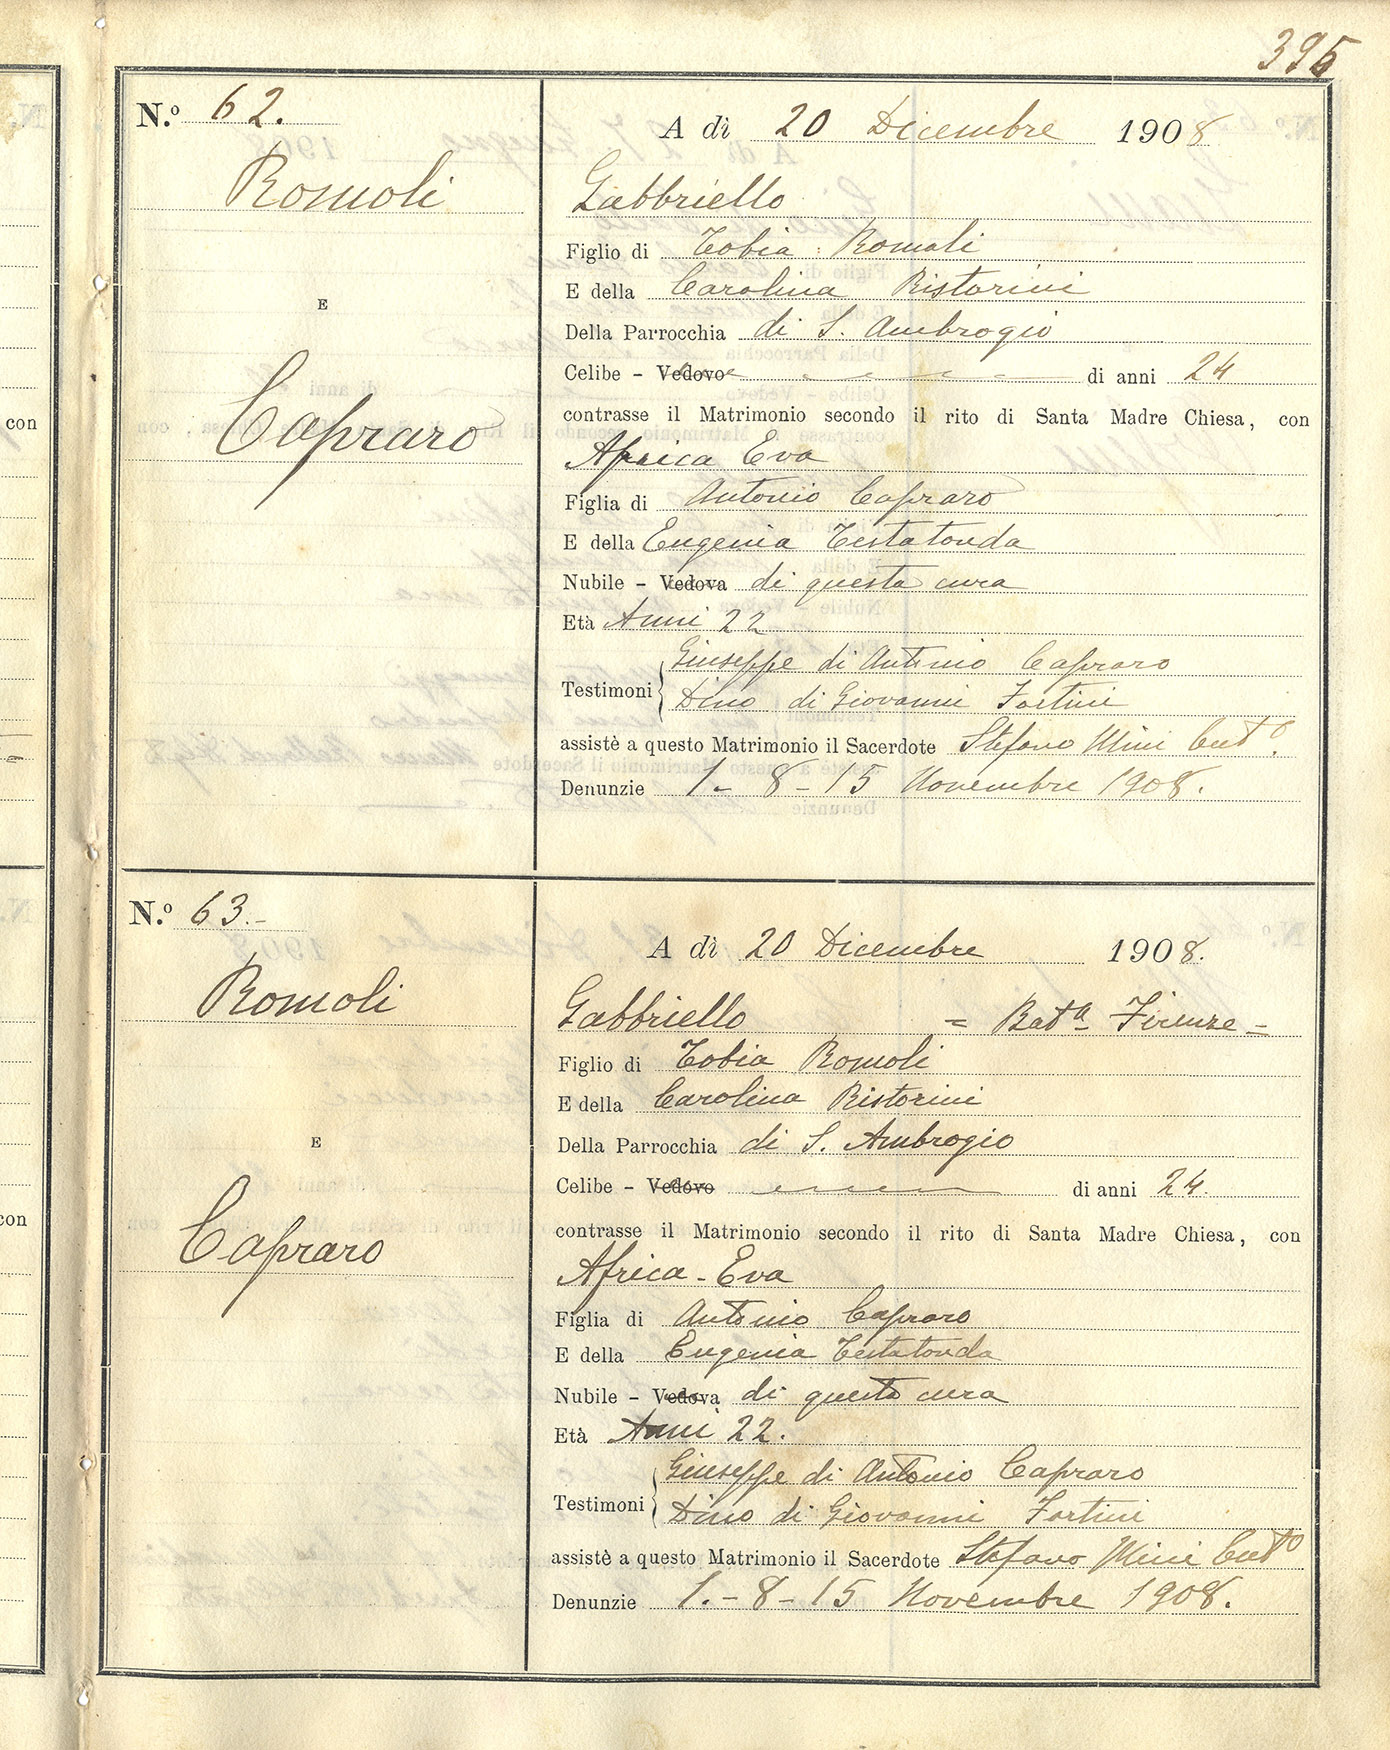 395
N.º 62.
Romoli
E
Capraro
A dì 20 Dicembre 1908
Gabbriello
Figlio di Tobia Romoli
E della Carolina Ristorini
Della Parrocchia di S. Ambrogio
Celibe – Vedovo di anni 24
contrasse il Matrimonio secondo il rito di Santa Madre Chiesa, con
Africa Eva
Figlia di Antonio Capraro
E della Eugenia Testatonda
Nubile – Vedova di questa cura
Età Anni 22
Testimoni Giuseppe di Antonio Capraro
Dino di Giovanni Fortini
assistè a questo Matrimonio il Sacerdote Stefano Mini Curº.
Denunzie 1 – 8 – 15 Novembre 1908.
N.º 63.–
Romoli
E
Capraro
A dì 20 Dicembre 1908.
Gabbriello = Batª Firenze –
Figlio di Tobia Romoli
E della Carolina Ristorini
Della Parrocchia di S. Ambrogio
Celibe – Vedovo di anni 24.
contrasse il Matrimonio secondo il rito di Santa Madre Chiesa, con
Africa - Eva
Figlia di Antonio Capraro
E della Eugenia Testatonda
Nubile – Vedova di questa cura
Età Anni 22.
Testimoni Giuseppe di Antonio Capraro
Dino di Giovanni Fortini
assistè a questo Matrimonio il Sacerdote Stefano Mini Curº
Denunzie 1. – 8 – 15 Novembre 1908.
con
con